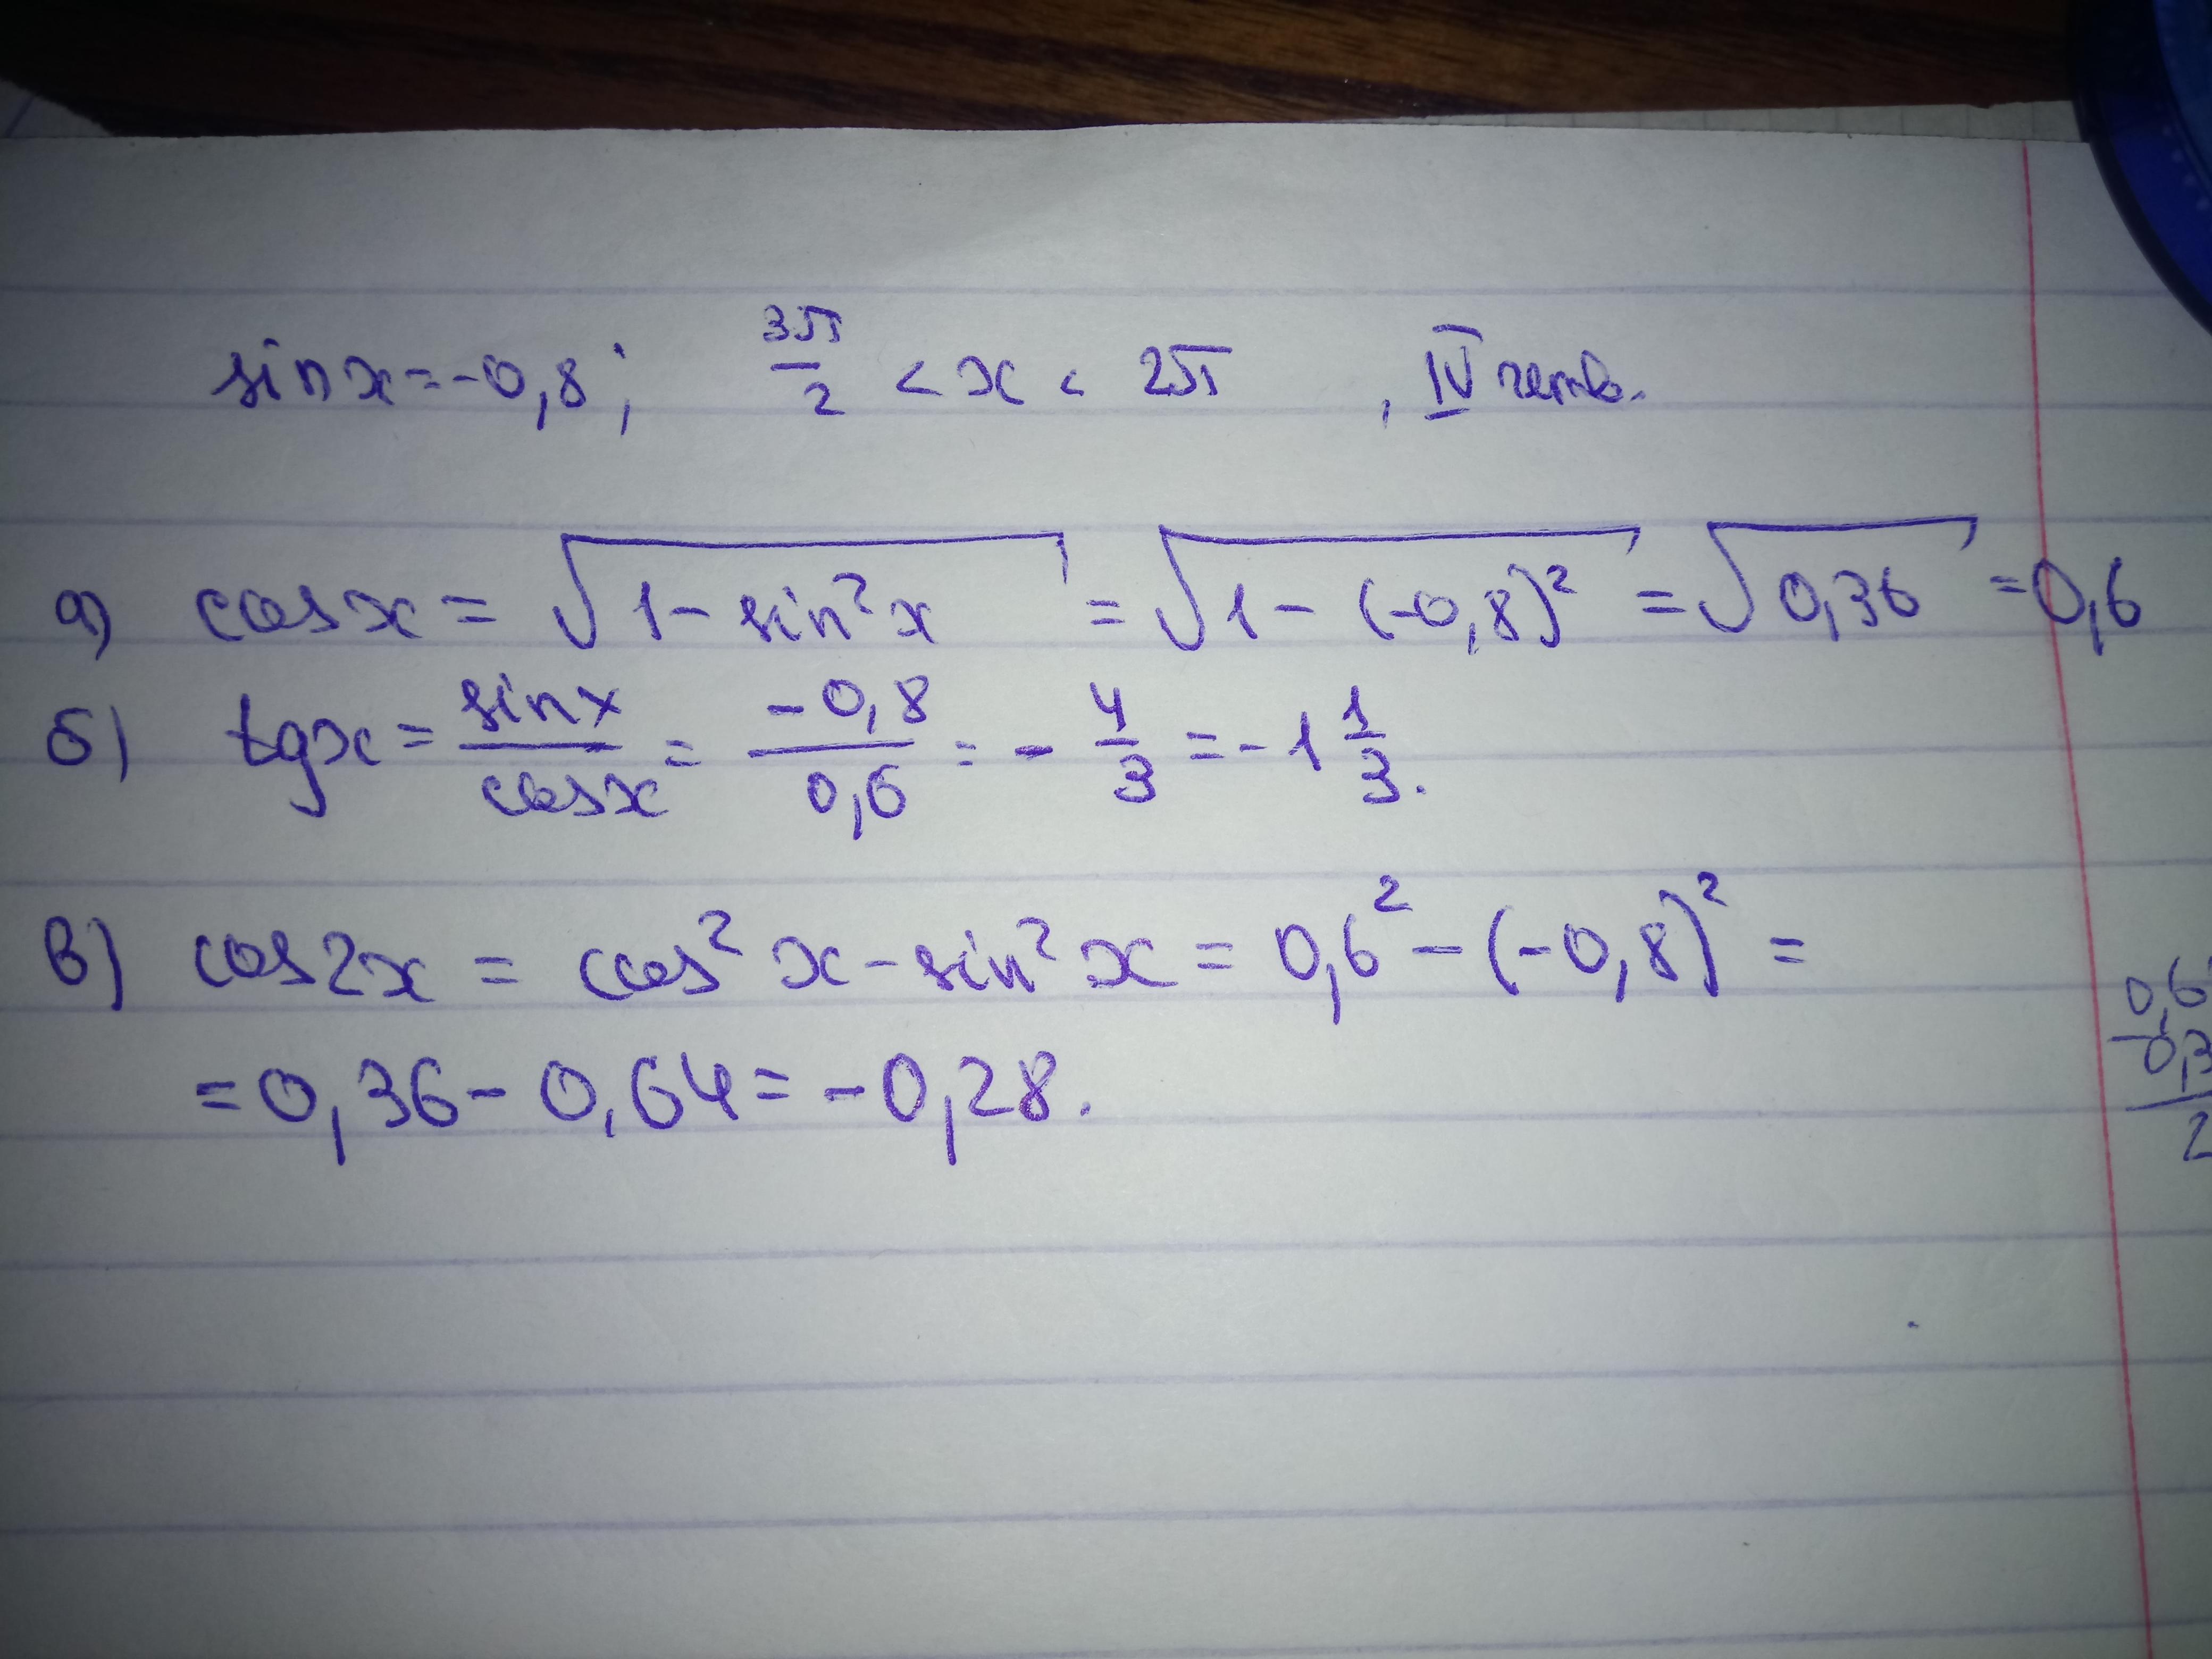 sin x = -0,8; 3π/2 < x < 2π , IV четв.
а) cos x = √(1 - sin² x) = √(1 - (-0,8)²) = √0,36 = 0,6
б) tg x = sin x / cos x = -0,8 / 0,6 = - 4/3 = -1 1/3.
в) cos 2x = cos² x - sin² x = 0,6² - (-0,8)² =
= 0,36 - 0,64 = -0,28.
0,6
- 0,3
2